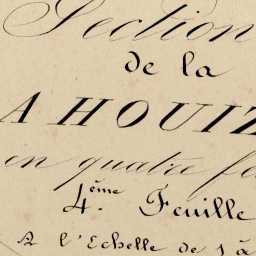 Section
de la
A HOUIZ
en quatre fe
4ème Feuille
A l'Echelle de 1 à